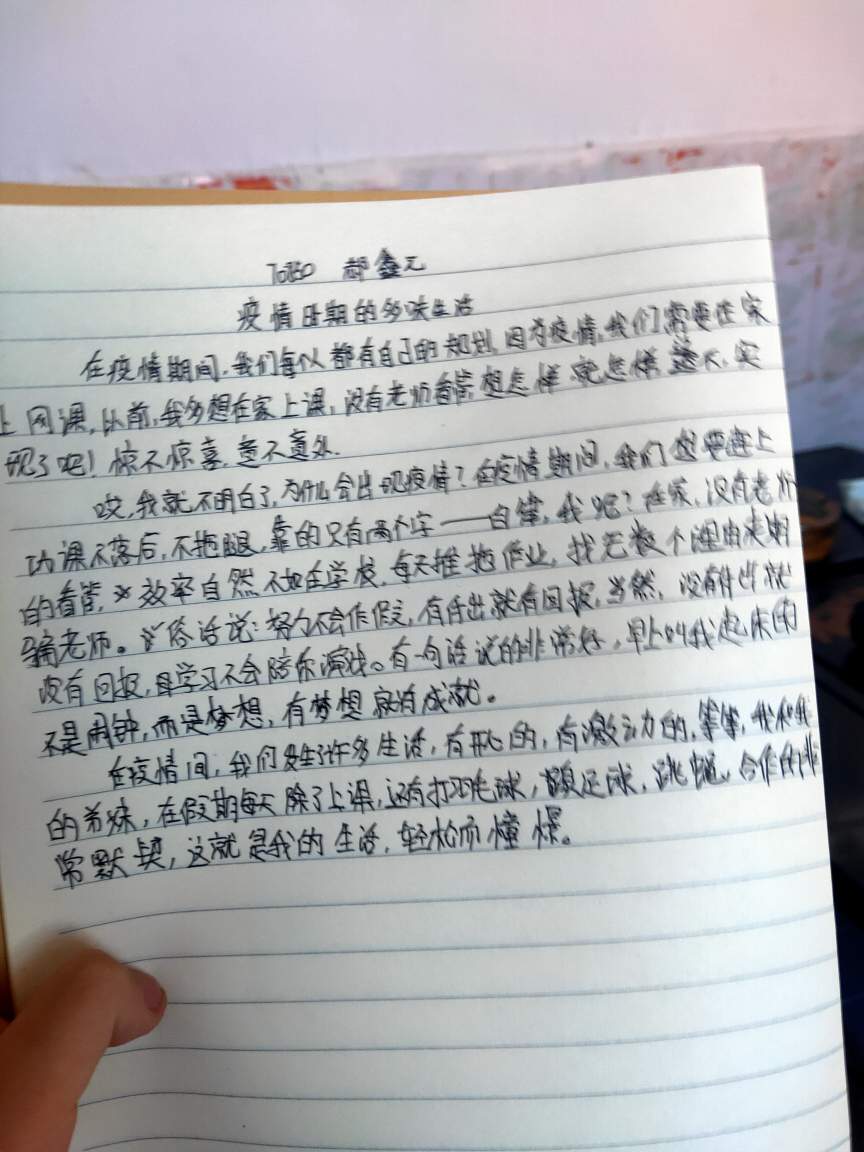 郝鑫元
疫情日期的多味生活
在疫情期间,我们每人都有自己的规划,因为疫情,我们需要在家
上网课,以前,我多想在家上课,没有老师看管,想怎样就怎样,这不,实
现了吧!惊不惊喜,意不意外.
哎,我就不明白了,为什么会出现疫情?在疫情期间,我们想要赶上
功课不落后,不拖腿,靠的只有两个字——自律,我呢?在家,没有老师
的看管,效率自然不如在学校,每天推拖作业,找无数个理由来期
骗老师。俗话说:努力不会作假,有付出就有回报,当然,没有付出就
没有回报,学习不会陪你演戏。有一句话说的非常好,早上叫我起床的
不是闹钟,而是梦想,有梦想就有成就。
在疫情间,我们发生了许多生活,有开心的,有激动的,等等,我和我
的弟妹,在假期每天除了上课,还有打羽毛球,踢足球,跳绳,合作的非
常默契,这就是我的生活,轻松而憧憬。